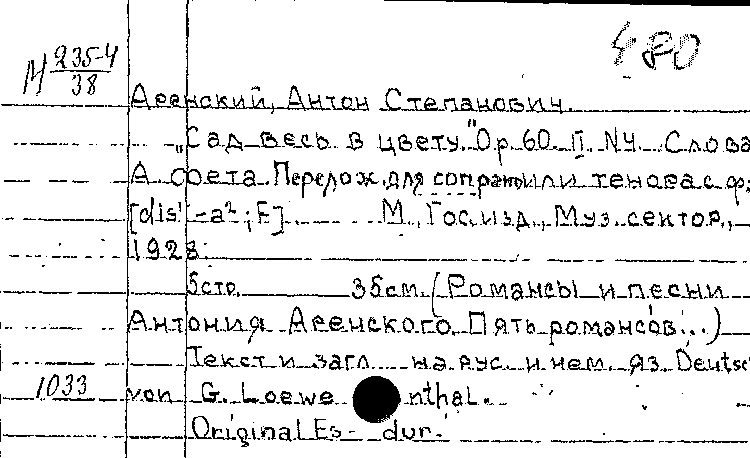 480
М 235-4
38
Аренский, Антон Степанович.
„Сад весь в цвету." Op. 60. II. N4. Слова
А. Фета. Перелож. для сопрано или тенора с ф.
[dis¹-a²; F]. М., Гос. изд., Муз. сектор,
1928.
5 стр. 35 см. (Романсы и песни
Антония Аренского. Пять романсов...)
Текст и загл. на рус. и нем. яз. Deutsc
1033 von G. Loewenthal.
Original Es-dur.